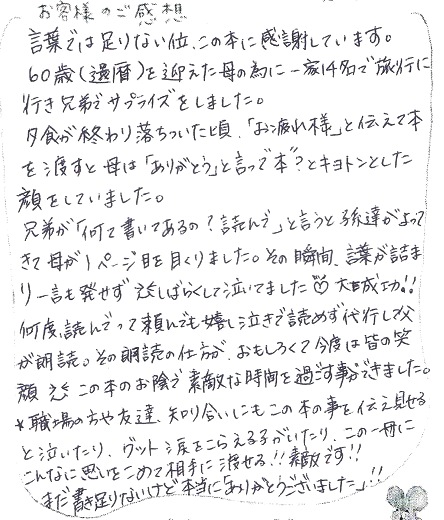 お客様のご感想
言葉では足りない位、この本に感謝しています。
60歳(還暦)を迎えた母の為に一家14名で旅行に
行き兄弟でサプライズをしました。
夕食が終わり落ちついた頃、「お疲れ様」と伝えて本
を渡すと母は「ありがとう」と言って"本"?とキョトンとした
顔をしていました。
兄弟が「何て書いてあるの?読んで」と言うと孫達がよって
きて母が1ページ目を目くりました。その瞬間、言葉が詰ま
り一言も発せず しばらくして泣いてました♡大成功!!
何度、読んでって頼んでも嬉し泣きで読めず代行して父
が朗読。その朗読の仕方が、おもしろくて今度は皆の笑
顔 この本のお陰で素敵な時間を過ごす事ができました。
*職場の方や友達、知り合いにもこの本の事を伝え見せる
と泣いたり、グット涙をこらえる子がいたり、この一冊に
こんなに思いをこめて相手に渡せる!!素敵です!!
まだ書き足りないけど本当に「ありがとうございました」!!